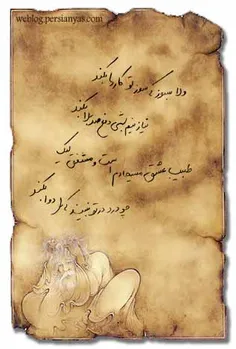 weblog.persianyas.com
دلا بسوز که سوز تو کارها بکند
نیاز نیم شبی دفع صد بلا بکند
طبیب عشق مسیحا دم است و مشفق لیک
چو درد در تو نبیند که را دوا بکند